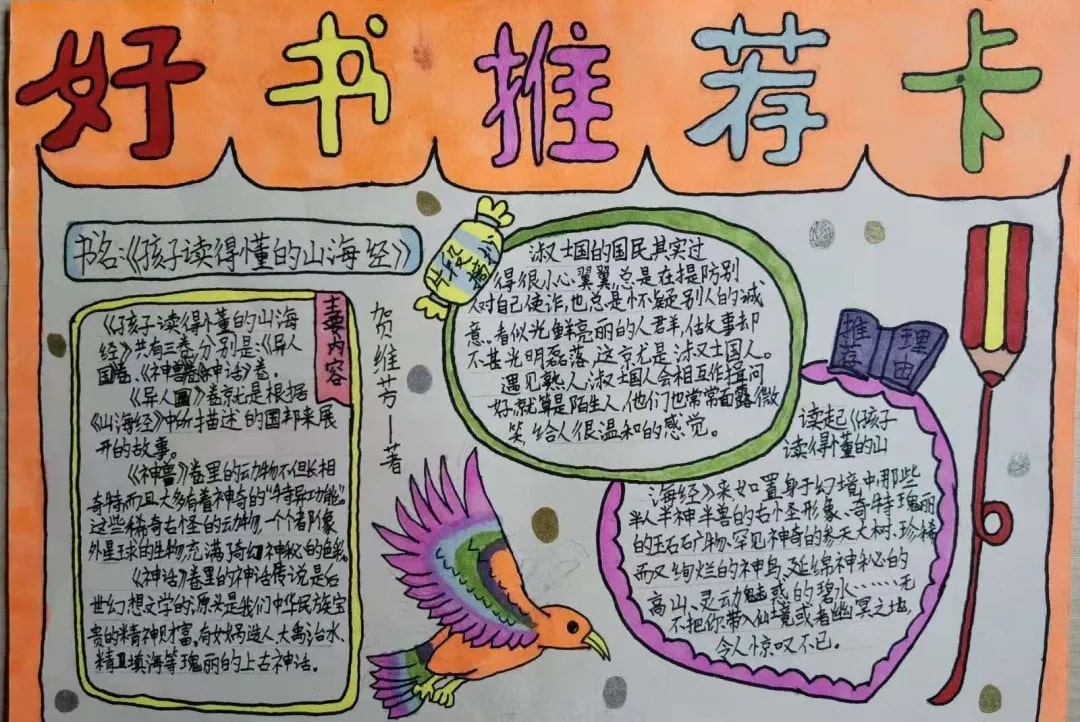 好书推荐卡
书名:《孩子读得懂的山海经》
贺维芳—著
主要内容
《孩子读得懂的山海
经》共有三卷,分别是:《异人
国卷、《神兽卷》神话》卷。
《异人国》卷就是根据
《山海经》中所描述的国邦来展
开的故事。
《神兽》卷里的动物不但长相
奇特,而且大多有着神奇的“特异功能”。
这些稀奇古怪的动物,一个个都象
外星球的生物,充满了奇幻神秘的色彩。
《神话》卷里的神话传说是后
世幻想文学的源头,是我们中华民族宝
贵的精神财富,有女娲造人、大禹治水、
精卫填海等瑰丽的上古神话。
好段摘抄
淑士国的国民其实过
得很小心翼翼,总是在提防别
人对自己使诈,也总是怀疑别人的诚
意。看似光鲜亮丽的人群,做故事却
不甚光明磊落,这就是淑士国人。
遇见熟人,淑士国人会相互作揖问
好,就算是陌生人,他们也常常面露微
笑,给人很温和的感觉。
推荐理由
读起《孩子
读得懂的山
海经》来如置身于幻境中,那些
半人半神半兽的古怪形象、奇特瑰丽
的玉石矿物、罕见神奇的参天大树、珍稀
而又绚烂的神鸟、延绵神秘的
高山、灵动魅惑的碧水……无
不把你带入仙境或者幽冥之地,
令人惊叹不已。